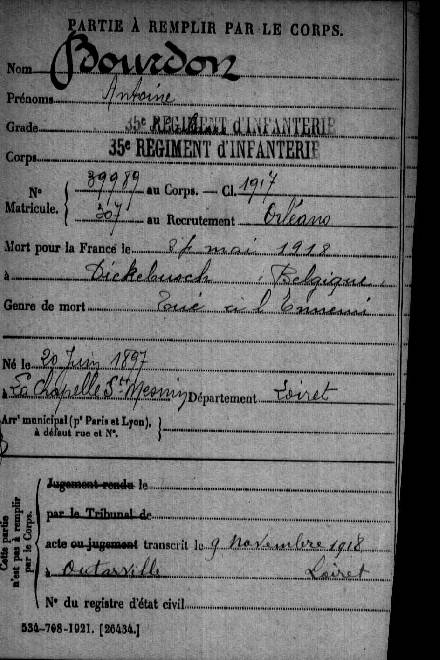 PARTIE À REMPLIR PAR LE CORPS.
Nom Bourdon
Prénoms Antoine
Grade 35e REGIMENT d'INFANTERIE
Corps 35e REGIMENT d'INFANTERIE
N° Matricule. { 39989 au Corps. — Cl. 1917
307 au Recrutement Orléans
Mort pour la France le mai 1918
à Dickebusch Belgique
Genre de mort Tué à l'Ennemi
Né le 20 Juin 1897
à La Chapelle St Mesmin Département Loiret
Arrt municipal (pr Paris et Lyon),
à défaut rue et N°.
Cette partie n'est pas à remplir par le Corps.
Jugement rendu le
par le Tribunal de
acte ou jugement transcrit le 9 novembre 1918
à Outarville Loiret
N° du registre d'état civil
534-708-1921. [26434.]